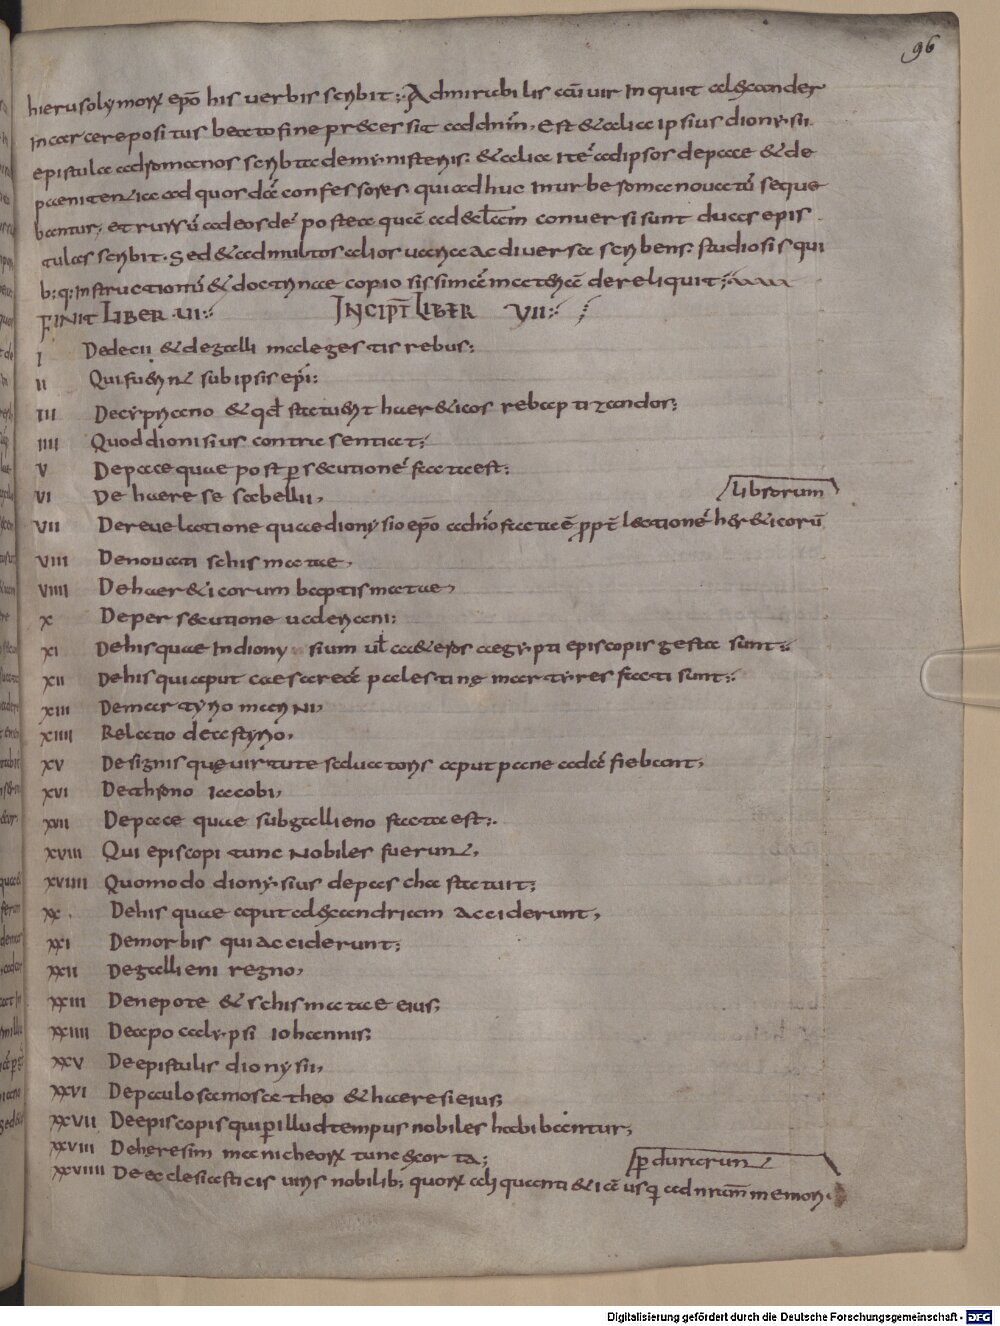 96
hierusolymorꝝ epō his uerbis scribit; Admirabilis etiā uir inquit alexander
in carcere positus beato fine precessit ad dn̄m. Est & alia ipsius dionysii
epistula ad romanos scribta de mynisteriis. & alia itē ad ipsos de pace & de
paenitentia ad quosdā confessores. qui adhuc in urbe roma nouatū seque
bantur; et rursū ad eosdē postea quā ad eccl̄am conuersi sunt duas epis
tulas scribit. Sed & ad multos alios uaria ac diuersa scribens. studiosis qui
b;q; instructionū & doctrinae copiosissimā materiā dereliquit;
FINIT LIBER VI: INCIPT̄ LIBER VII:
I De decii & de galli malegestis rebus:
II Qui fuerint sub ipsis epī:
III De cypriano & qd̄ statuerit haereticos rebaptizandos;
IIII Quod dionisius contra sentiat;
V De pace quae post ꝑsecutionē facta est;
VI De haerese sabellii,
librorum
VII De reuelatione quae dionysio epō a chr̄o facta ē ꝓpt̄ lectionē hereticorū
VIII De nouati schismatae,
VIIII De haereticorum baptismatae,
X De persecutione ualeriani:
XI De his quae in diony sium ul̄ ceteros aegypti episcopis gesta sunt;
XII De his qui aput caesareā palestinę martyres facti sunt;
XIII De martyrio marini,
XIIII Relatio de astyrio,
XV De signis quę uirtute saluatoris aput paneadē fiebant,
XVI De throno iacobi,
XVII De pace quae sub gallieno facta est;
XVIII Qui episcopi tunc nobiles fuerunt,
XVIIII Quomodo dionysius de pascha statuit;
XX De his quae aput alexandriam acciderunt,
XXI De morbis qui acciderunt;
XXII De gallieni regno,
XXIII De nepote & schismatae eius;
XXIIII De apocalypsi iohannis;
XXV De epistulis dionysii,
XXVI De paulo samosatheo & haeresi eius;
XXVII De episcopis qui ꝑ illud tempus nobiles habibantur,
XXVIII De heresim manicheorꝝ tunc exorta;
ꝑdurarunt
XXVIIII De ecclesiasticis uiris nobilib; quorꝝ aliquanti etiā usq; ad nr̄am memori.
Digitalisierung gefördert durch die Deutsche Forschungsgemeinschaft - DFG